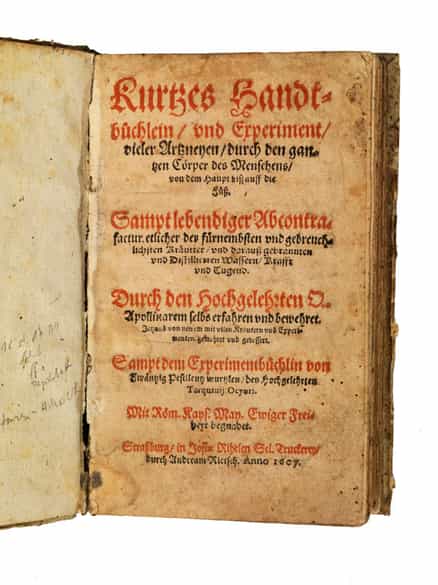 Kurtzes Handt-
büchlein / vnd Experiment /
vieler Artzneyen / durch den gan-
tzen Cörper des Menschens /
von dem Haupt biß auff die
Füß.
Sampt lebendiger Abcontra-
factur, etlicher der fürnembsten vnd gebreuch-
lichsten Kräutter / vnd darauß gebrannten
vnd Distillierten Wassern / Krafft
vnd Tugend.
Durch den Hochgelehrten Q.
Apollinarem selbs erfahren vnd bewehret.
Jetzund von newem mit vilen Kräutern vnd Experi-
menten, gemehret vnd gebessert.
Sampt dem Experimentbüchlin von
Zwäntzig Pestilentz wurtzlen / des Hochgelehrten
Tarquinij Ocyori.
Mit Röm. Kays. May. Ewiger Frei-
heyt begnadet.
Straßburg / in Josiæ Rihelen Sel. Truckerey /
durch Andream Rietsch. Anno 1607.